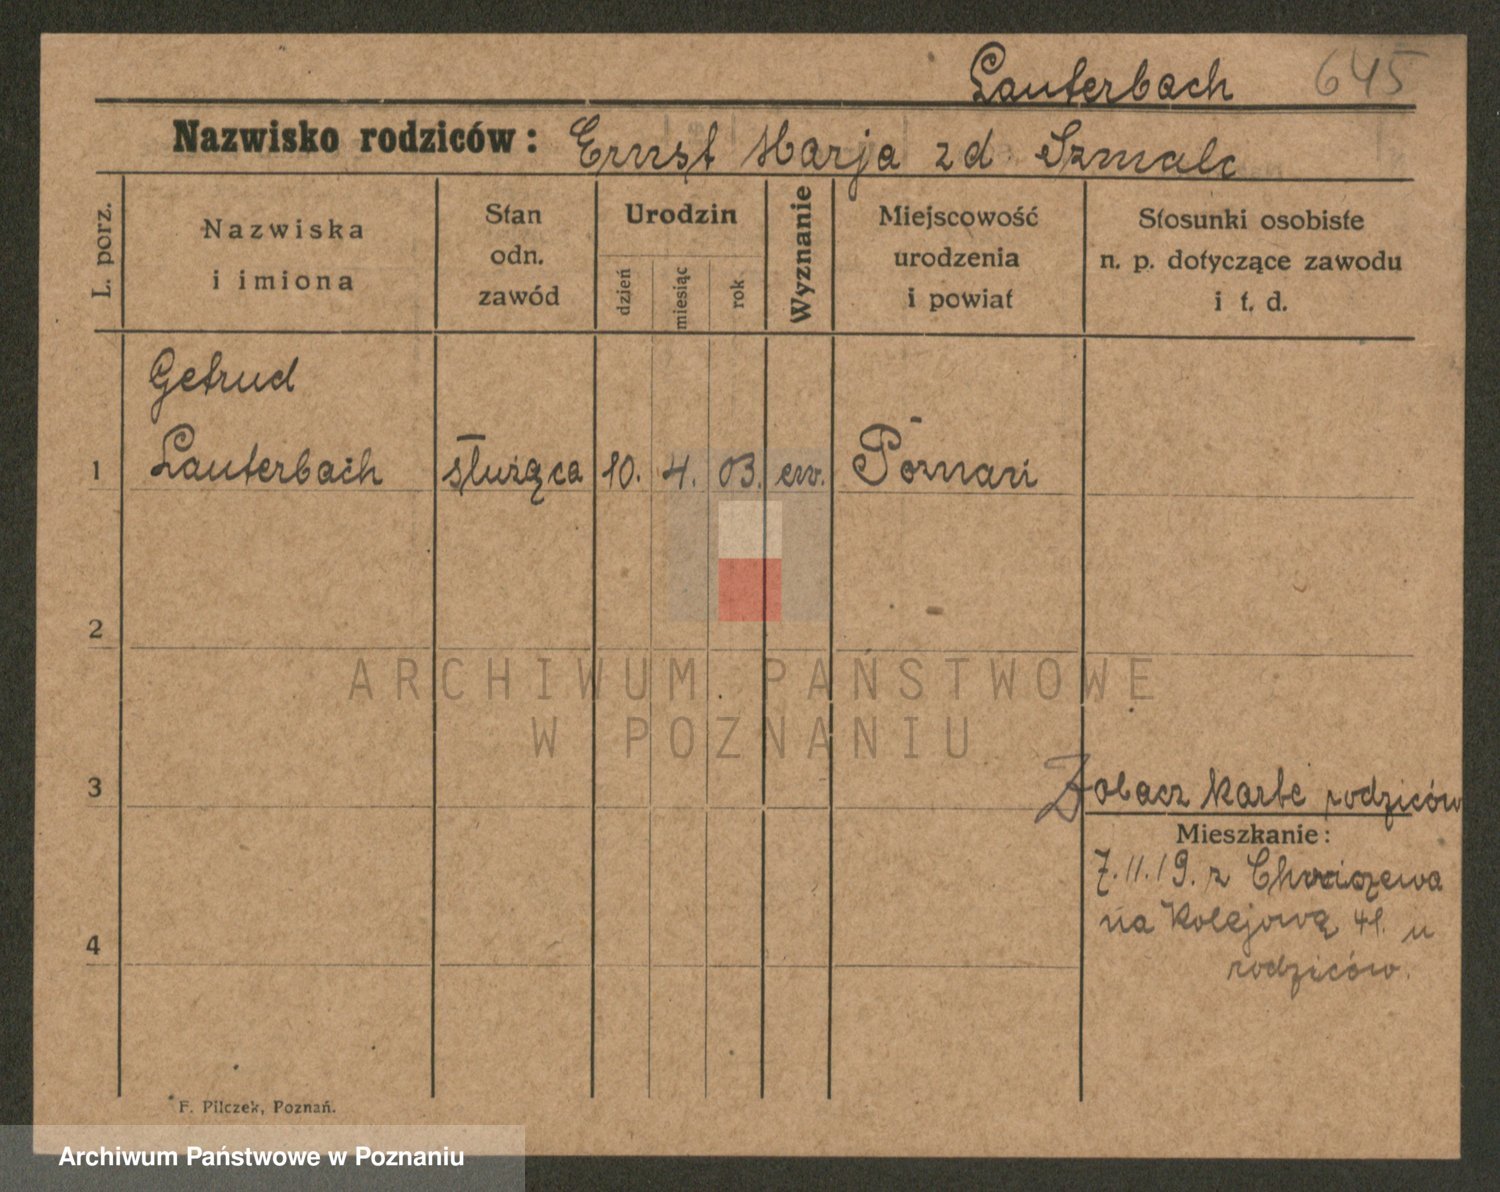 Lauterbach 645
Nazwisko rodziców: Ernst Marja zd Szmalc
L. porz.
Nazwiska
i imiona
Stan
odn.
zawód
Urodzin
dzień
miesiąc
rok
Wyznanie
Miejscowość
urodzenia
i powiat
Stosunki osobiste
n. p. dotyczące zawodu
i t. d.
Getrud
1 Lauterbach służąca 10. 4. 03. ew. Poznań
2
ARCHIWUM PAŃSTWOWE
W POZNANIU
3
Zobacz kartę rodziców
Mieszkanie:
7.11.19. z
na Kolejową 41. u
rodziców.
4
F. Pilczek, Poznań.
Archiwum Państwowe w Poznaniu